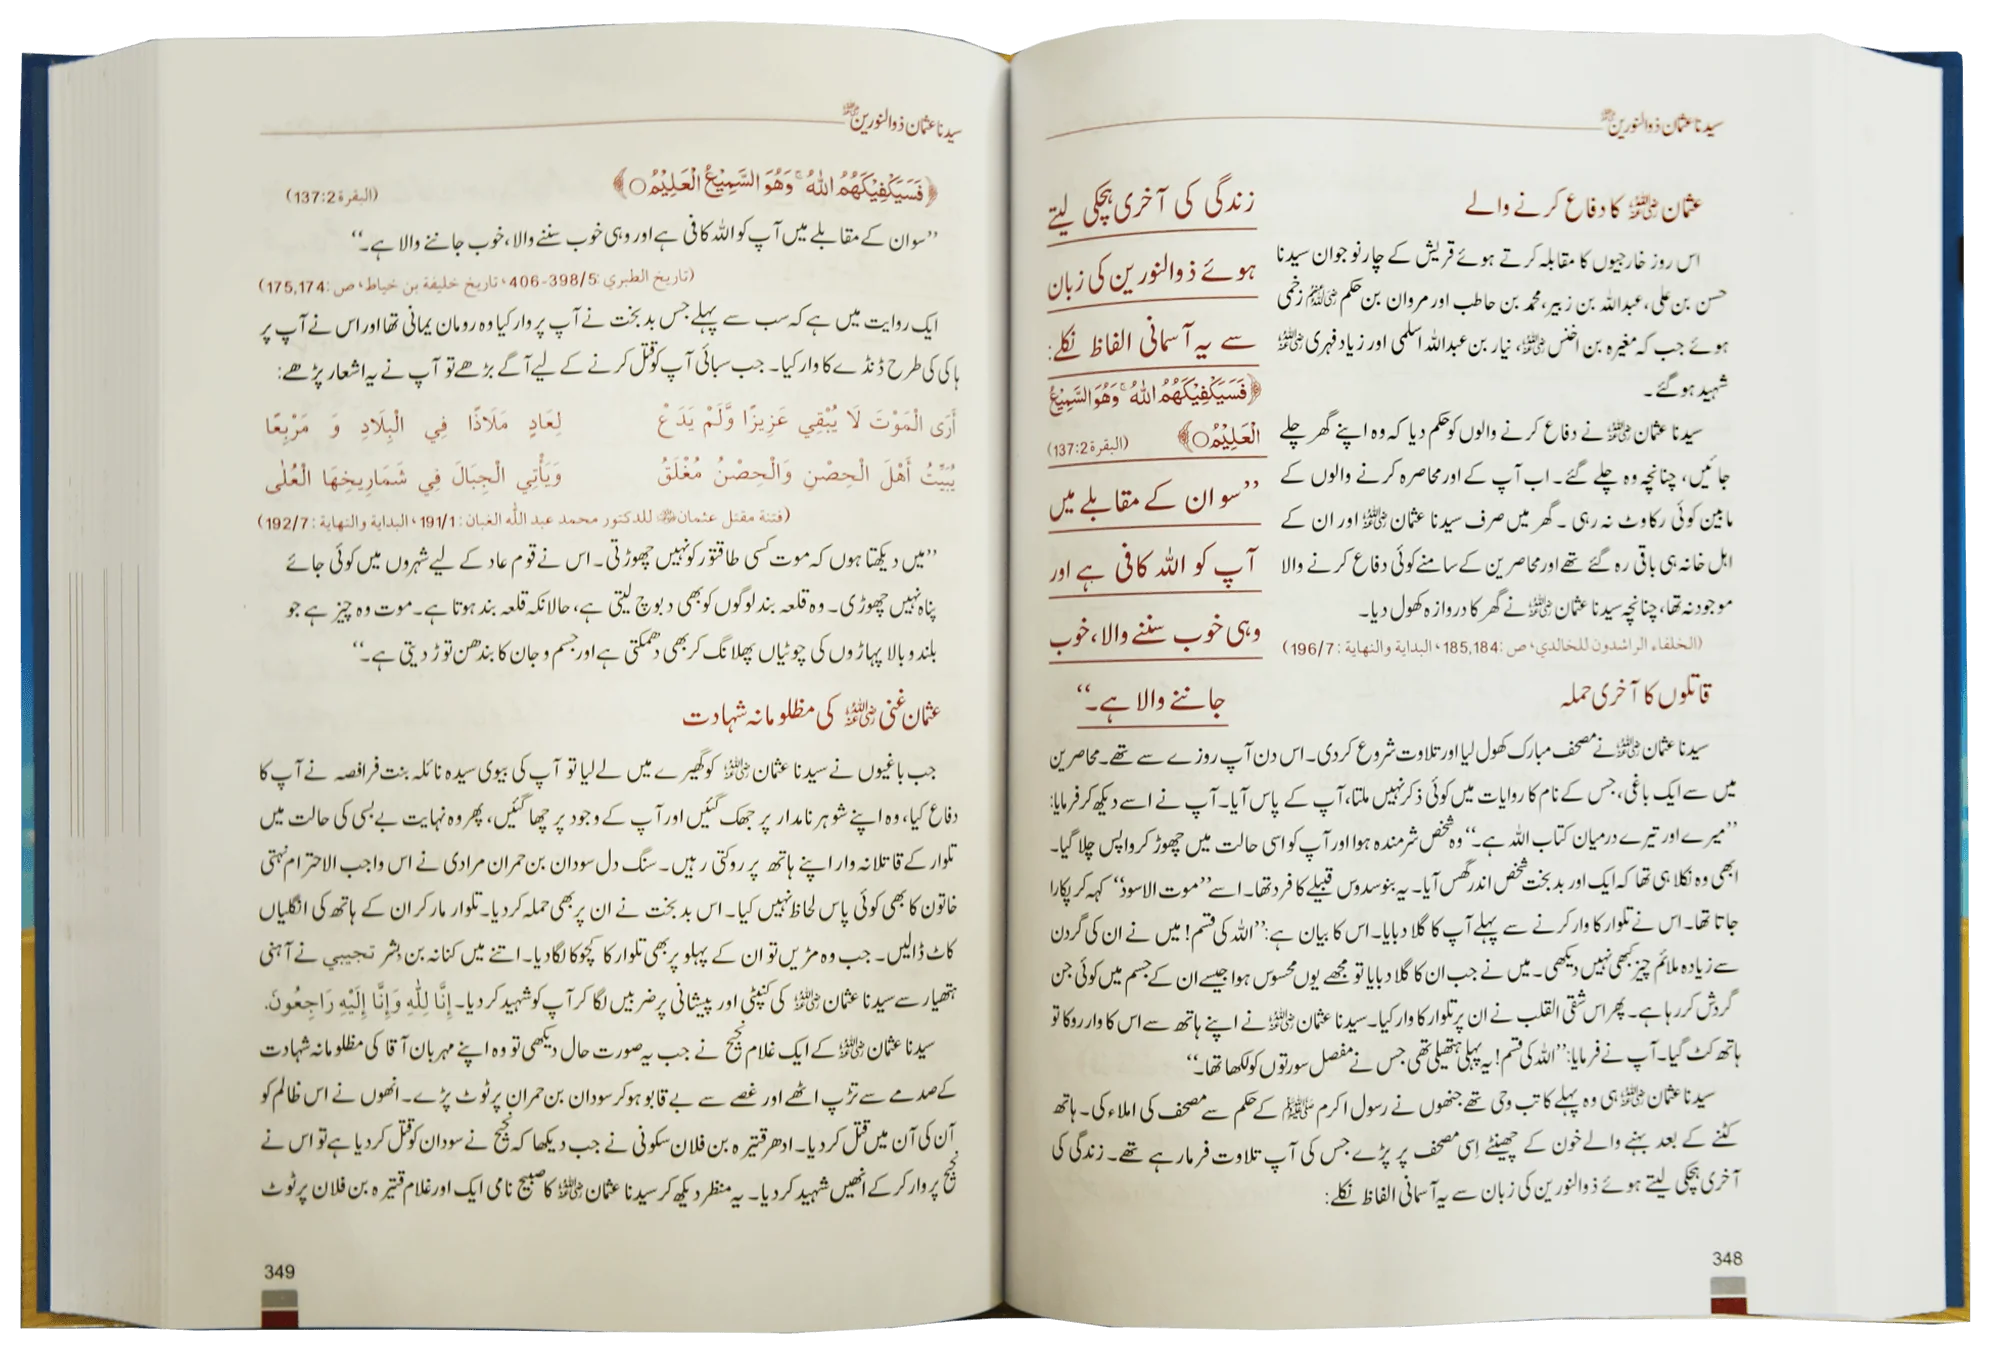 سیدنا عثمان ذوالنورین رضی اللہ عنہ
عثمان رضی اللہ عنہ کا دفاع کرنے والے
اس روز خارجیوں کا مقابلہ کرتے ہوئے قریش کے چار نوجوان سیدنا
حسن بن علی، عبداللہ بن زبیر، محمد بن حاطب اور مروان بن حکم رضی اللہ عنہم زخمی
ہوئے جب کہ مغیرہ بن اخنس رضی اللہ عنہ، نیار بن عبداللہ اسلمی اور زیاد فہری رضی اللہ عنہ
شہید ہو گئے۔
سیدنا عثمان رضی اللہ عنہ نے دفاع کرنے والوں کو حکم دیا کہ وہ اپنے گھر چلے
جائیں، چنانچہ وہ چلے گئے۔ اب آپ کے اور محاصرہ کرنے والوں کے
مابین کوئی رکاوٹ نہ رہی۔ گھر میں صرف سیدنا عثمان رضی اللہ عنہ اور ان کے
اہل خانہ ہی باقی رہ گئے تھے اور محاصرین کے سامنے کوئی دفاع کرنے والا
موجود نہ تھا، چنانچہ سیدنا عثمان رضی اللہ عنہ نے گھر کا دروازہ کھول دیا۔
(الخلفاء الراشدون للخالدي، ص: 185,184، البداية والنهاية: 196/7)
زندگی کی آخری ہچکی لیتے
ہوئے ذوالنورین کی زبان
سے یہ آسمانی الفاظ نکلے:
﴿فَسَيَكْفِيكَهُمُ اللّٰهُ ۚ وَهُوَ السَّمِيْعُ
الْعَلِيْمُ○﴾ (البقرۃ 137:2)
”سو ان کے مقابلے میں
آپ کو اللہ کافی ہے اور
وہی خوب سننے والا، خوب
جاننے والا ہے۔“
قاتلوں کا آخری حملہ
سیدنا عثمان رضی اللہ عنہ نے مصحف مبارک کھول لیا اور تلاوت شروع کر دی۔ اس دن آپ روزے سے تھے۔ محاصرین
میں سے ایک باغی، جس کے نام کا روایات میں کوئی ذکر نہیں ملتا، آپ کے پاس آیا۔ آپ نے اسے دیکھ کر فرمایا:
”میرے اور تیرے درمیان کتاب اللہ ہے۔“ وہ شخص شرمندہ ہوا اور آپ کو اسی حالت میں چھوڑ کر واپس چلا گیا۔
ابھی وہ نکلا ہی تھا کہ ایک اور بد بخت شخص اندر گھس آیا۔ یہ بنو سدوس قبیلے کا فرد تھا۔ اسے ”موت الاسود“ کہہ کر پکارا
جاتا تھا۔ اس نے تلوار کا وار کرنے سے پہلے آپ کا گلا دبایا۔ اس کا بیان ہے: ”اللہ کی قسم! میں نے ان کی گردن
سے زیادہ ملائم چیز کبھی نہیں دیکھی۔ میں نے جب ان کا گلا دبایا تو مجھے یوں محسوس ہوا جیسے ان کے جسم میں کوئی جن
گردش کر رہا ہے۔ پھر اس شقی القلب نے ان پر تلوار کا وار کیا۔ سیدنا عثمان رضی اللہ عنہ نے اپنے ہاتھ سے اس کا وار روکا تو
ہاتھ کٹ گیا۔ آپ نے فرمایا: ”اللہ کی قسم! یہ پہلی ہتھیلی تھی جس نے مفصل سورتوں کو لکھا تھا۔“
سیدنا عثمان رضی اللہ عنہ ہی وہ پہلے کاتب وحی تھے جنھوں نے رسول اکرم ﷺ کے حکم سے مصحف کی املاء کی۔ ہاتھ
کٹنے کے بعد بہنے والے خون کے چھینٹے اِسی مصحف پر پڑے جس کی آپ تلاوت فرما رہے تھے۔ زندگی کی
آخری ہچکی لیتے ہوئے ذوالنورین کی زبان سے یہ آسمانی الفاظ نکلے:
348
سیدنا عثمان ذوالنورین رضی اللہ عنہ
﴿فَسَيَكْفِيكَهُمُ اللّٰهُ ۚ وَهُوَ السَّمِيْعُ الْعَلِيْمُ○﴾ (البقرۃ 137:2)
”سو ان کے مقابلے میں آپ کو اللہ کافی ہے اور وہی خوب سننے والا، خوب جاننے والا ہے۔“
(تاريخ الطبري: 398/5-406، تاريخ خليفة بن خياط، ص: 175,174)
ایک روایت میں ہے کہ سب سے پہلے جس بد بخت نے آپ پر وار کیا وہ رومان یمانی تھا اور اس نے آپ پر
ہاکی کی طرح ڈنڈے کا وار کیا۔ جب سبائی آپ کو قتل کرنے کے لیے آگے بڑھے تو آپ نے یہ اشعار پڑھے:
أَرَى الْمَوْتَ لَا يُبْقِي عَزِيزًا وَّلَمْ يَدَعْ لِعَادٍ مَلَاذًا فِي الْبِلَادِ وَ مَرْبِعًا
يُبَيِّتُ أَهْلَ الْحِصْنِ وَالْحِصْنُ مُغْلَقُ وَيَأْتِي الْجِبَالَ فِي شَمَارِيخِهَا الْعُلٰى
(فتنة مقتل عثمان رضی اللہ عنہ للدكتور محمد عبد الله الغبان: 191/1، البداية والنهاية: 192/7)
”میں دیکھتا ہوں کہ موت کسی طاقتور کو نہیں چھوڑتی۔ اس نے قوم عاد کے لیے شہروں میں کوئی جائے
پناہ نہیں چھوڑی۔ وہ قلعہ بند لوگوں کو بھی دبوچ لیتی ہے، حالانکہ قلعہ بند ہوتا ہے۔ موت وہ چیز ہے جو
بلند و بالا پہاڑوں کی چوٹیاں پھلانگ کر بھی دھمکتی ہے اور جسم و جان کا بندھن توڑ دیتی ہے۔“
عثمان غنی رضی اللہ عنہ کی مظلومانہ شہادت
جب باغیوں نے سیدنا عثمان رضی اللہ عنہ کو گھیرے میں لے لیا تو آپ کی بیوی سیدہ نائلہ بنت فرافصہ نے آپ کا
دفاع کیا، وہ اپنے شوہر نامدار پر جھک گئیں اور آپ کے وجود پر چھا گئیں، پھر وہ نہایت بے بسی کی حالت میں
تلوار کے قاتلانہ وار اپنے ہاتھ پر روکتی رہیں۔ سنگ دل سودان بن حمران مرادی نے اس واجب الاحترام نہتی
خاتون کا بھی کوئی پاس لحاظ نہیں کیا۔ اس بد بخت نے ان پر بھی حملہ کر دیا۔ تلوار مار کر ان کے ہاتھ کی انگلیاں
کاٹ ڈالیں۔ جب وہ مڑیں تو ان کے پہلو پر بھی تلوار کا کچوکا لگا دیا۔ اتنے میں کنانہ بن بشر تجیبی نے آہنی
ہتھیار سے سیدنا عثمان رضی اللہ عنہ کی کنپٹی اور پیشانی پر ضربیں لگا کر آپ کو شہید کر دیا۔ إِنَّا لِلّٰهِ وَإِنَّا إِلَيْهِ رَاجِعُونَ.
سیدنا عثمان رضی اللہ عنہ کے ایک غلام نجیح نے جب یہ صورت حال دیکھی تو وہ اپنے مہربان آقا کی مظلومانہ شہادت
کے صدمے سے تڑپ اٹھے اور غصے سے بے قابو ہو کر سودان بن حمران پر ٹوٹ پڑے۔ انھوں نے اس ظالم کو
آن کی آن میں قتل کر دیا۔ ادھر قتیرہ بن فلان سکونی نے جب دیکھا کہ نجیح نے سودان کو قتل کر دیا ہے تو اس نے
نجیح پر وار کر کے انھیں شہید کر دیا۔ یہ منظر دیکھ کر سیدنا عثمان رضی اللہ عنہ کا صبیح نامی ایک اور غلام قتیرہ بن فلان پر ٹوٹ
349